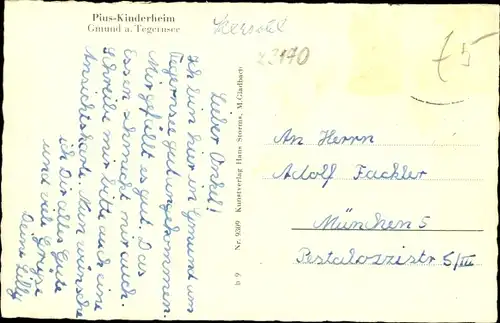 Pius-Kinderheim
Gmund a. Tegernsee
z3170
75
Lieber Onkel!
Ich bin hier in Gmund am
Tegernsee gut angekommen.
Mir gefällt es gut. Das
Essen schmeckt mir auch.
Schreibe mir bitte auch eine
Ansichtskarte. Nun wünsche
ich Dir alles Gute
und viele Grüße
Deine Lilly
Nr. 9309 Kunstverlag Hans Storms, M.Gladbach
b 9
An Herrn
Adolf Fackler
München 5
Pestalozzistr 5/III